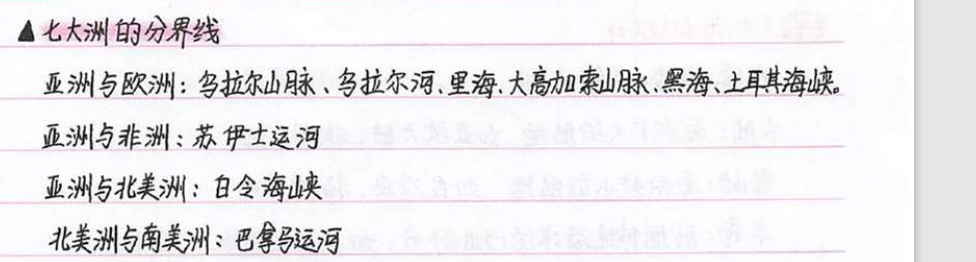 ▲七大洲的分界线
亚洲与欧洲：乌拉尔山脉、乌拉尔河、里海、大高加索山脉、黑海、土耳其海峡。
亚洲与非洲：苏伊士运河
亚洲与北美洲：白令海峡
北美洲与南美洲：巴拿马运河